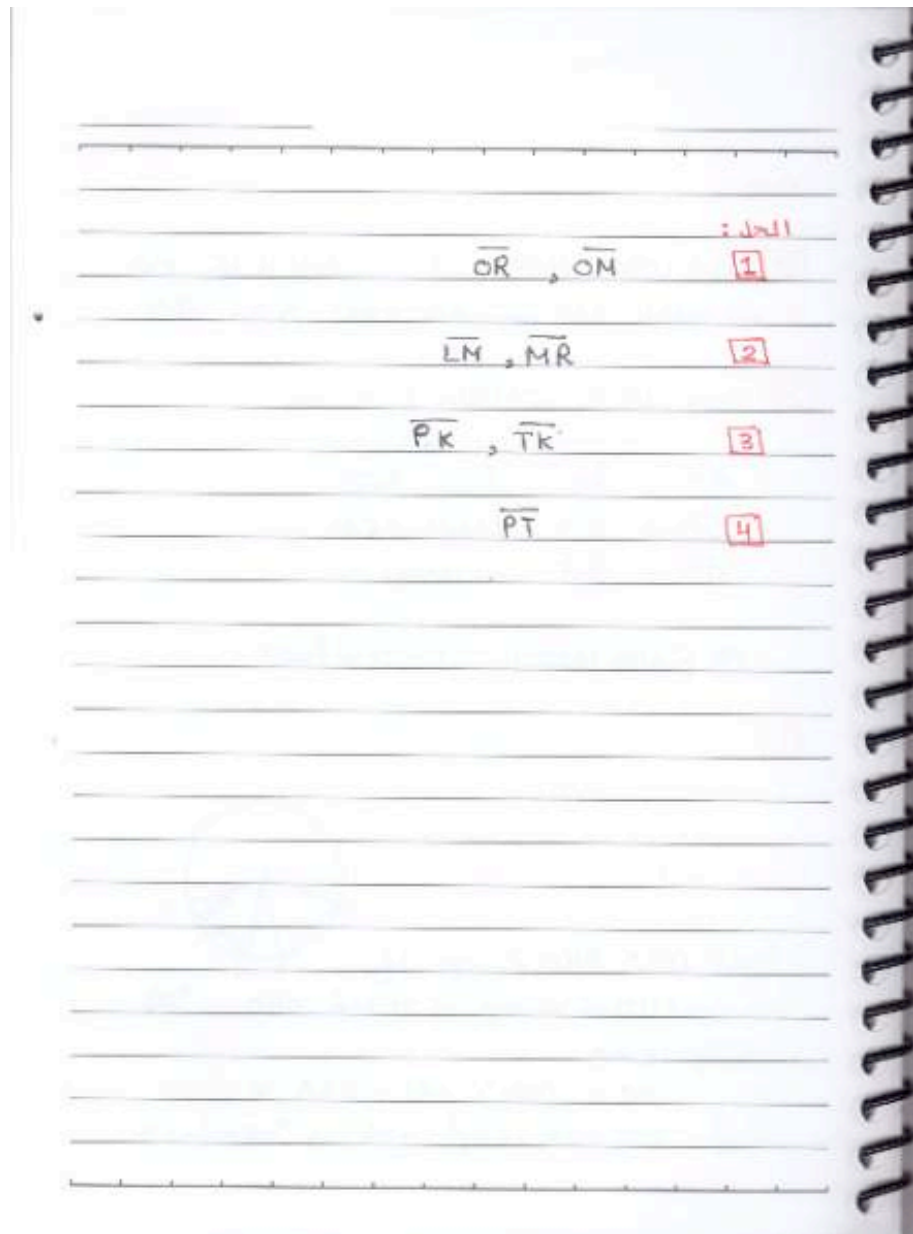 الحل :
1 $\overline{OR}$ , $\overline{OM}$
2 $\overline{LM}$ , $\overline{MR}$
3 $\overline{PK}$ , $\overline{TK}$
4 $\overline{PT}$